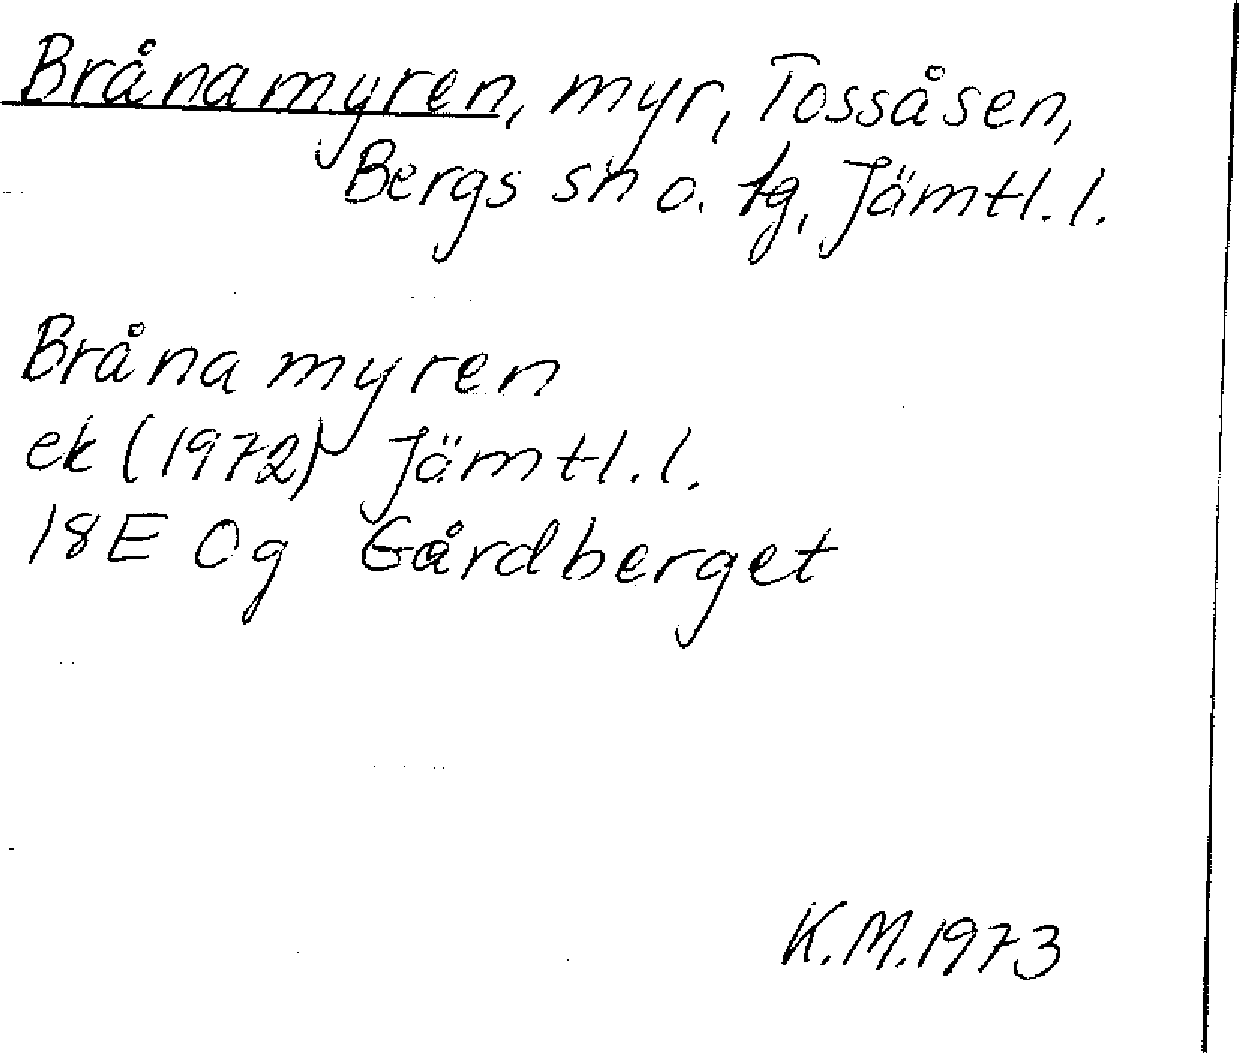 Brånamyren, myr, Tossåsen,
Bergs sn o. tg, Jämtl. l.
Bråna myren
ek (1972) Jämtl. l.
18E 0g Gårdberget
K.M. 1973